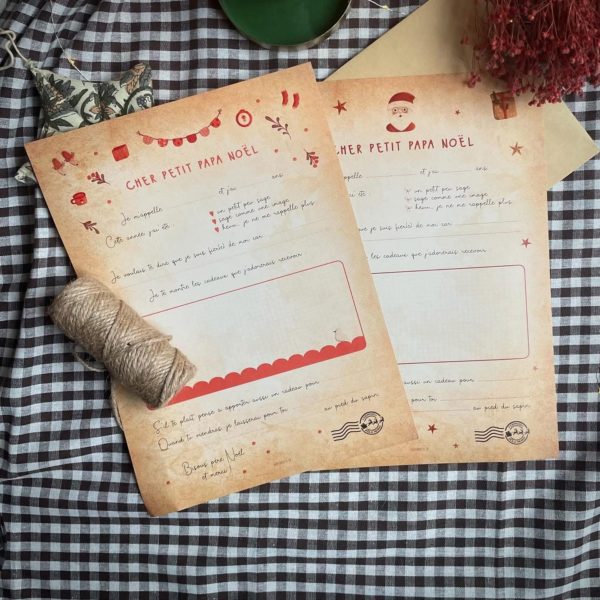 CHER PETIT PAPA NOËL
Je m'appelle et j'ai ans
Cette année j'ai été : un petit peu sage
sage comme une image
heuu... je ne me rappelle plus
Je voulais te dire que je suis fier(e) de moi car
Je te montre les cadeaux que j'adorerais recevoir
S'il te plaît pense à apporter aussi un cadeau pour
Quand tu viendras, je laisserai pour toi au pied du sapin
Bisous père Noël
et merci !
CHER PETIT PAPA NOËL
et j'ai ans
été : un petit peu sage
sage comme une image
heuu... je ne me rappelle plus
que je suis fier(e) de moi car
cadeaux que j'adorerais recevoir
aussi un cadeau pour
pour toi au pied du sapin